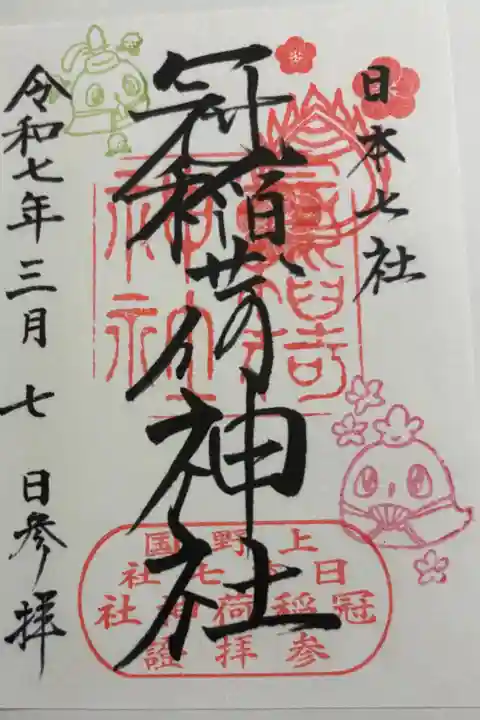 日本七社
冠稲荷神社
令和七年三月七日参拝
上野国
日本七社
冠稲荷神社
参拝証